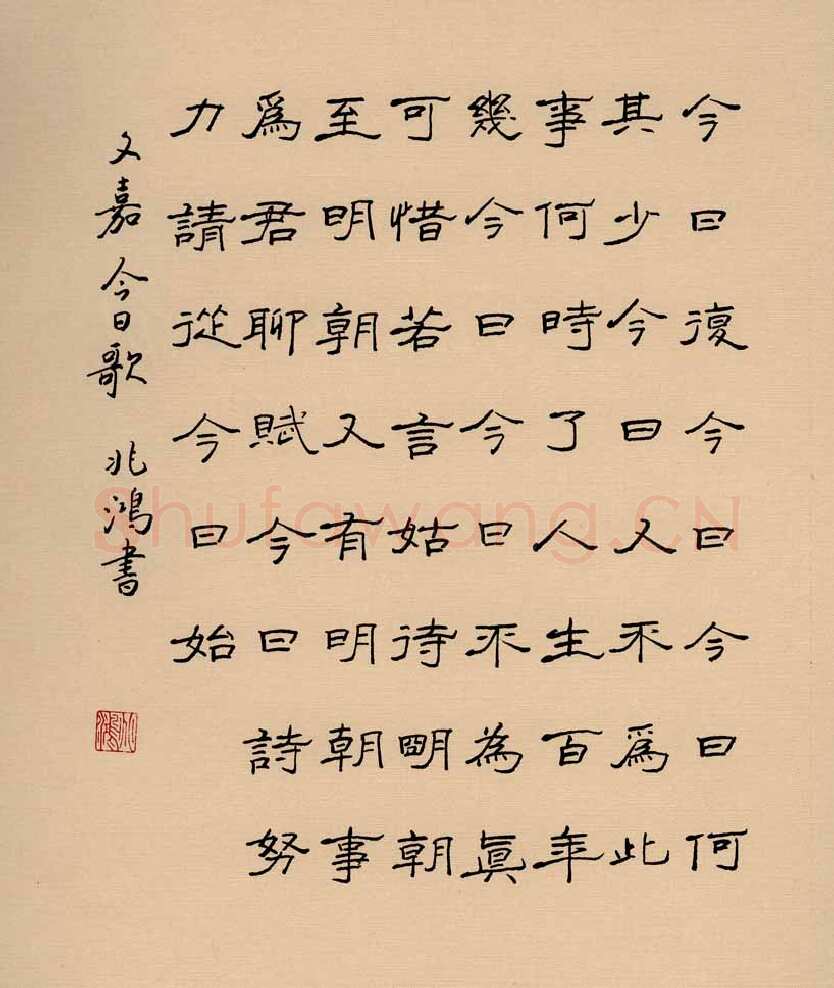 今日復今日今日何
其少今日又不爲此
事何時了人生百年
幾今日今日不為眞
可惜若言姑待明朝
至明朝又有明朝事
爲君聊賦今日詩努
力請從今日始
文嘉今日歌 兆鴻書
兆鴻
Shufawang.CN